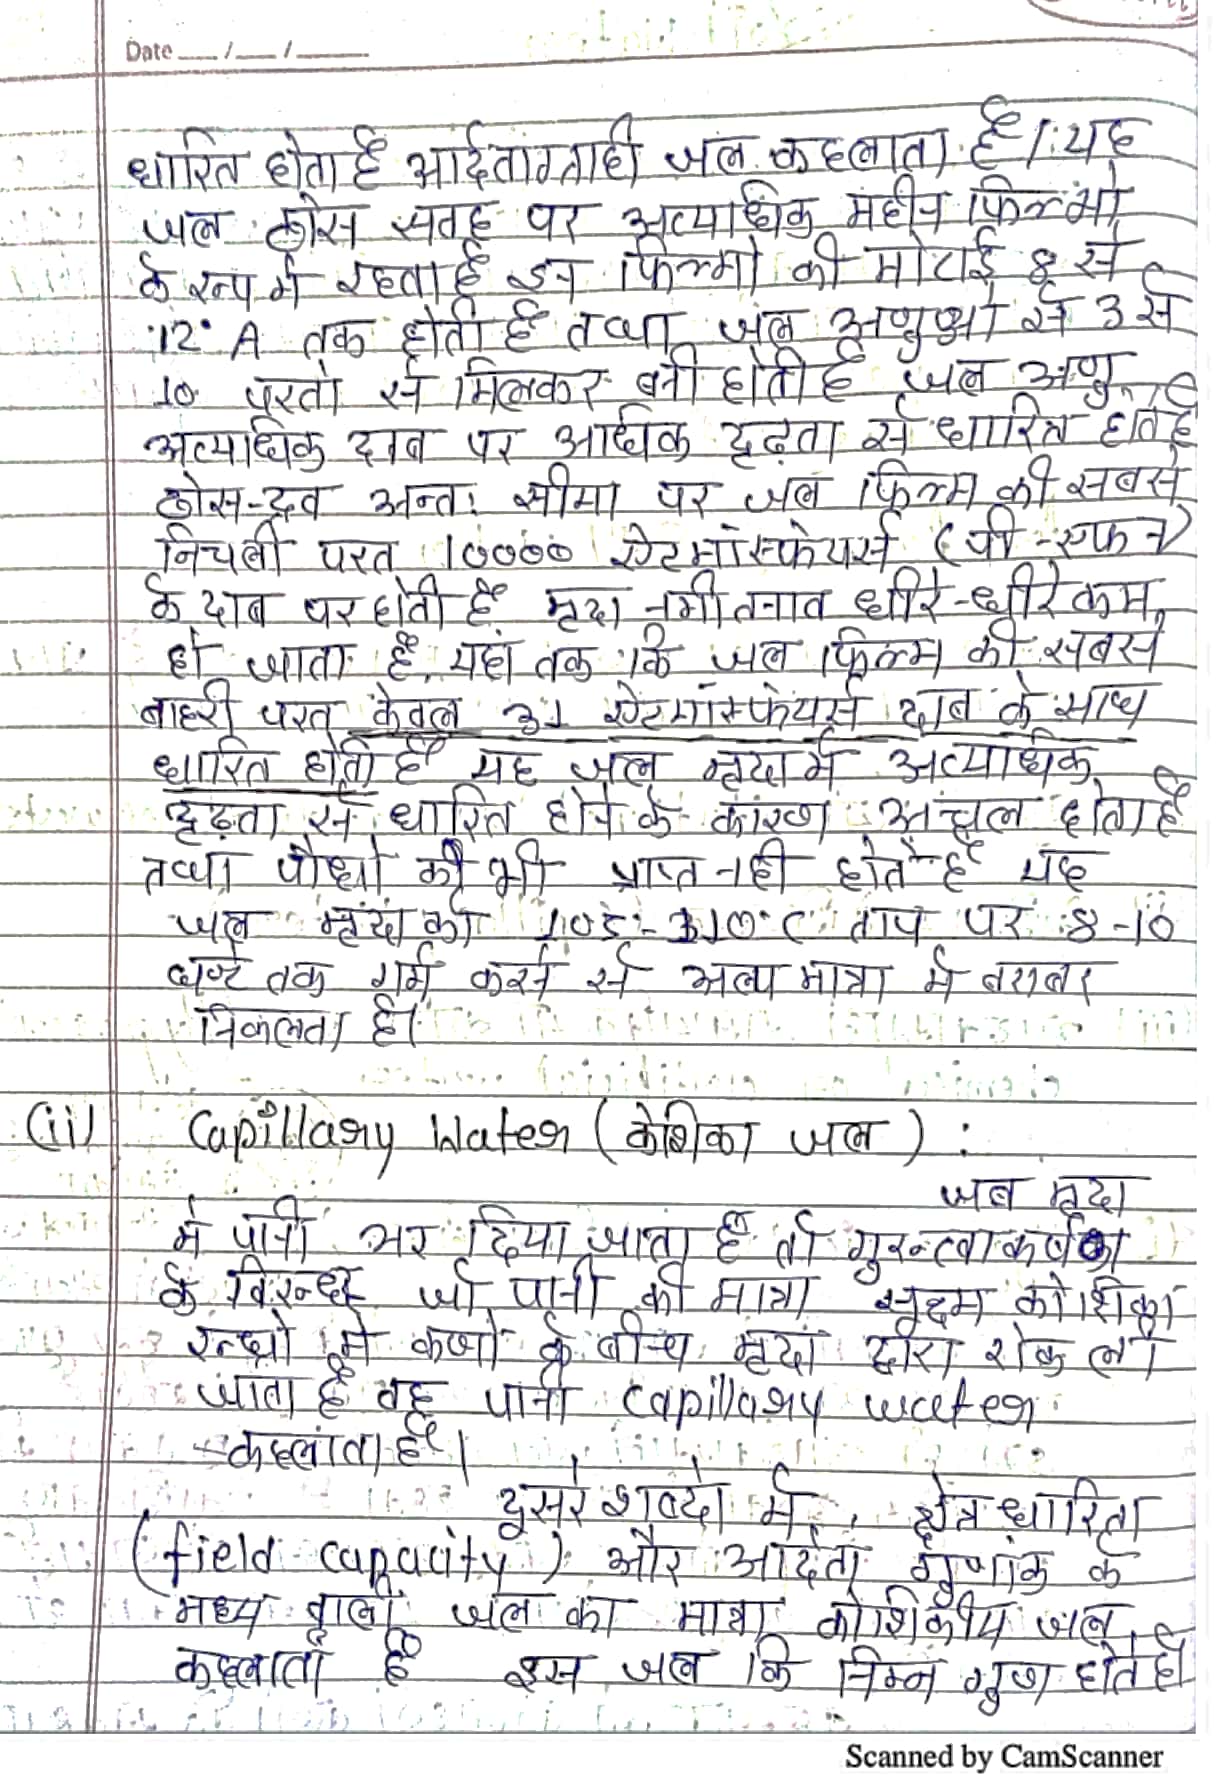 Date __/__/____
धारित होता है आर्द्रताग्राही जल कहलाता है। यह
जल ठोस सतह पर अत्याधिक महीन फिल्मो
के रूप में रहता है इन फिल्मो की मोटाई 8 से
12° A तक होती है तथा जल अणुओ से 3 से
10 परतो से मिलकर बनी होती है जल अणु
अत्याधिक दाब पर अधिक दृढ़ता से धारित होते है
ठोस-द्रव अन्तः सीमा पर जल फिल्म की सबसे
निचली परत 10000 ऐटमॉस्फेयर्स (पी-एफ 7)
के दाब पर होती है मृदा नमी तनाव धीरे-धीरे कम
हो जाता है, यहां तक कि जल फिल्म की सबसे
बाहरी परत केवल 31 ऐटमॉस्फेयर्स दाब के साथ
धारित होती है यह जल मृदा में अत्याधिक
दृढ़ता से धारित होने के कारण अचल होता है
तथा पौधो की भी प्राप्त नही होते है यह
जल मृदा को 105-110°C ताप पर 8-10
घण्टे तक गर्म करने से अल्प मात्रा मे बराबर
निकलता है।
(ii) Capillary Water (केशिका जल) :
जब मृदा
मे पानी भर दिया जाता है तो गुरुत्वाकर्षण
के विरुद्ध जो पानी की मात्रा सूक्ष्म कोशिका
रन्ध्रो मे कणो के बीच मृदा द्वारा रोक ली
जाता है वह पानी Capillary water
कहलाता है।
दूसरे शब्दो मे, क्षेत्र धारिता
(field capacity) और आर्द्रता गुणांक के
मध्य वाली जल का मात्रा कोशिकीय जल
कहलाता है इस जल कि निम्न गुण होते है
Scanned by CamScanner